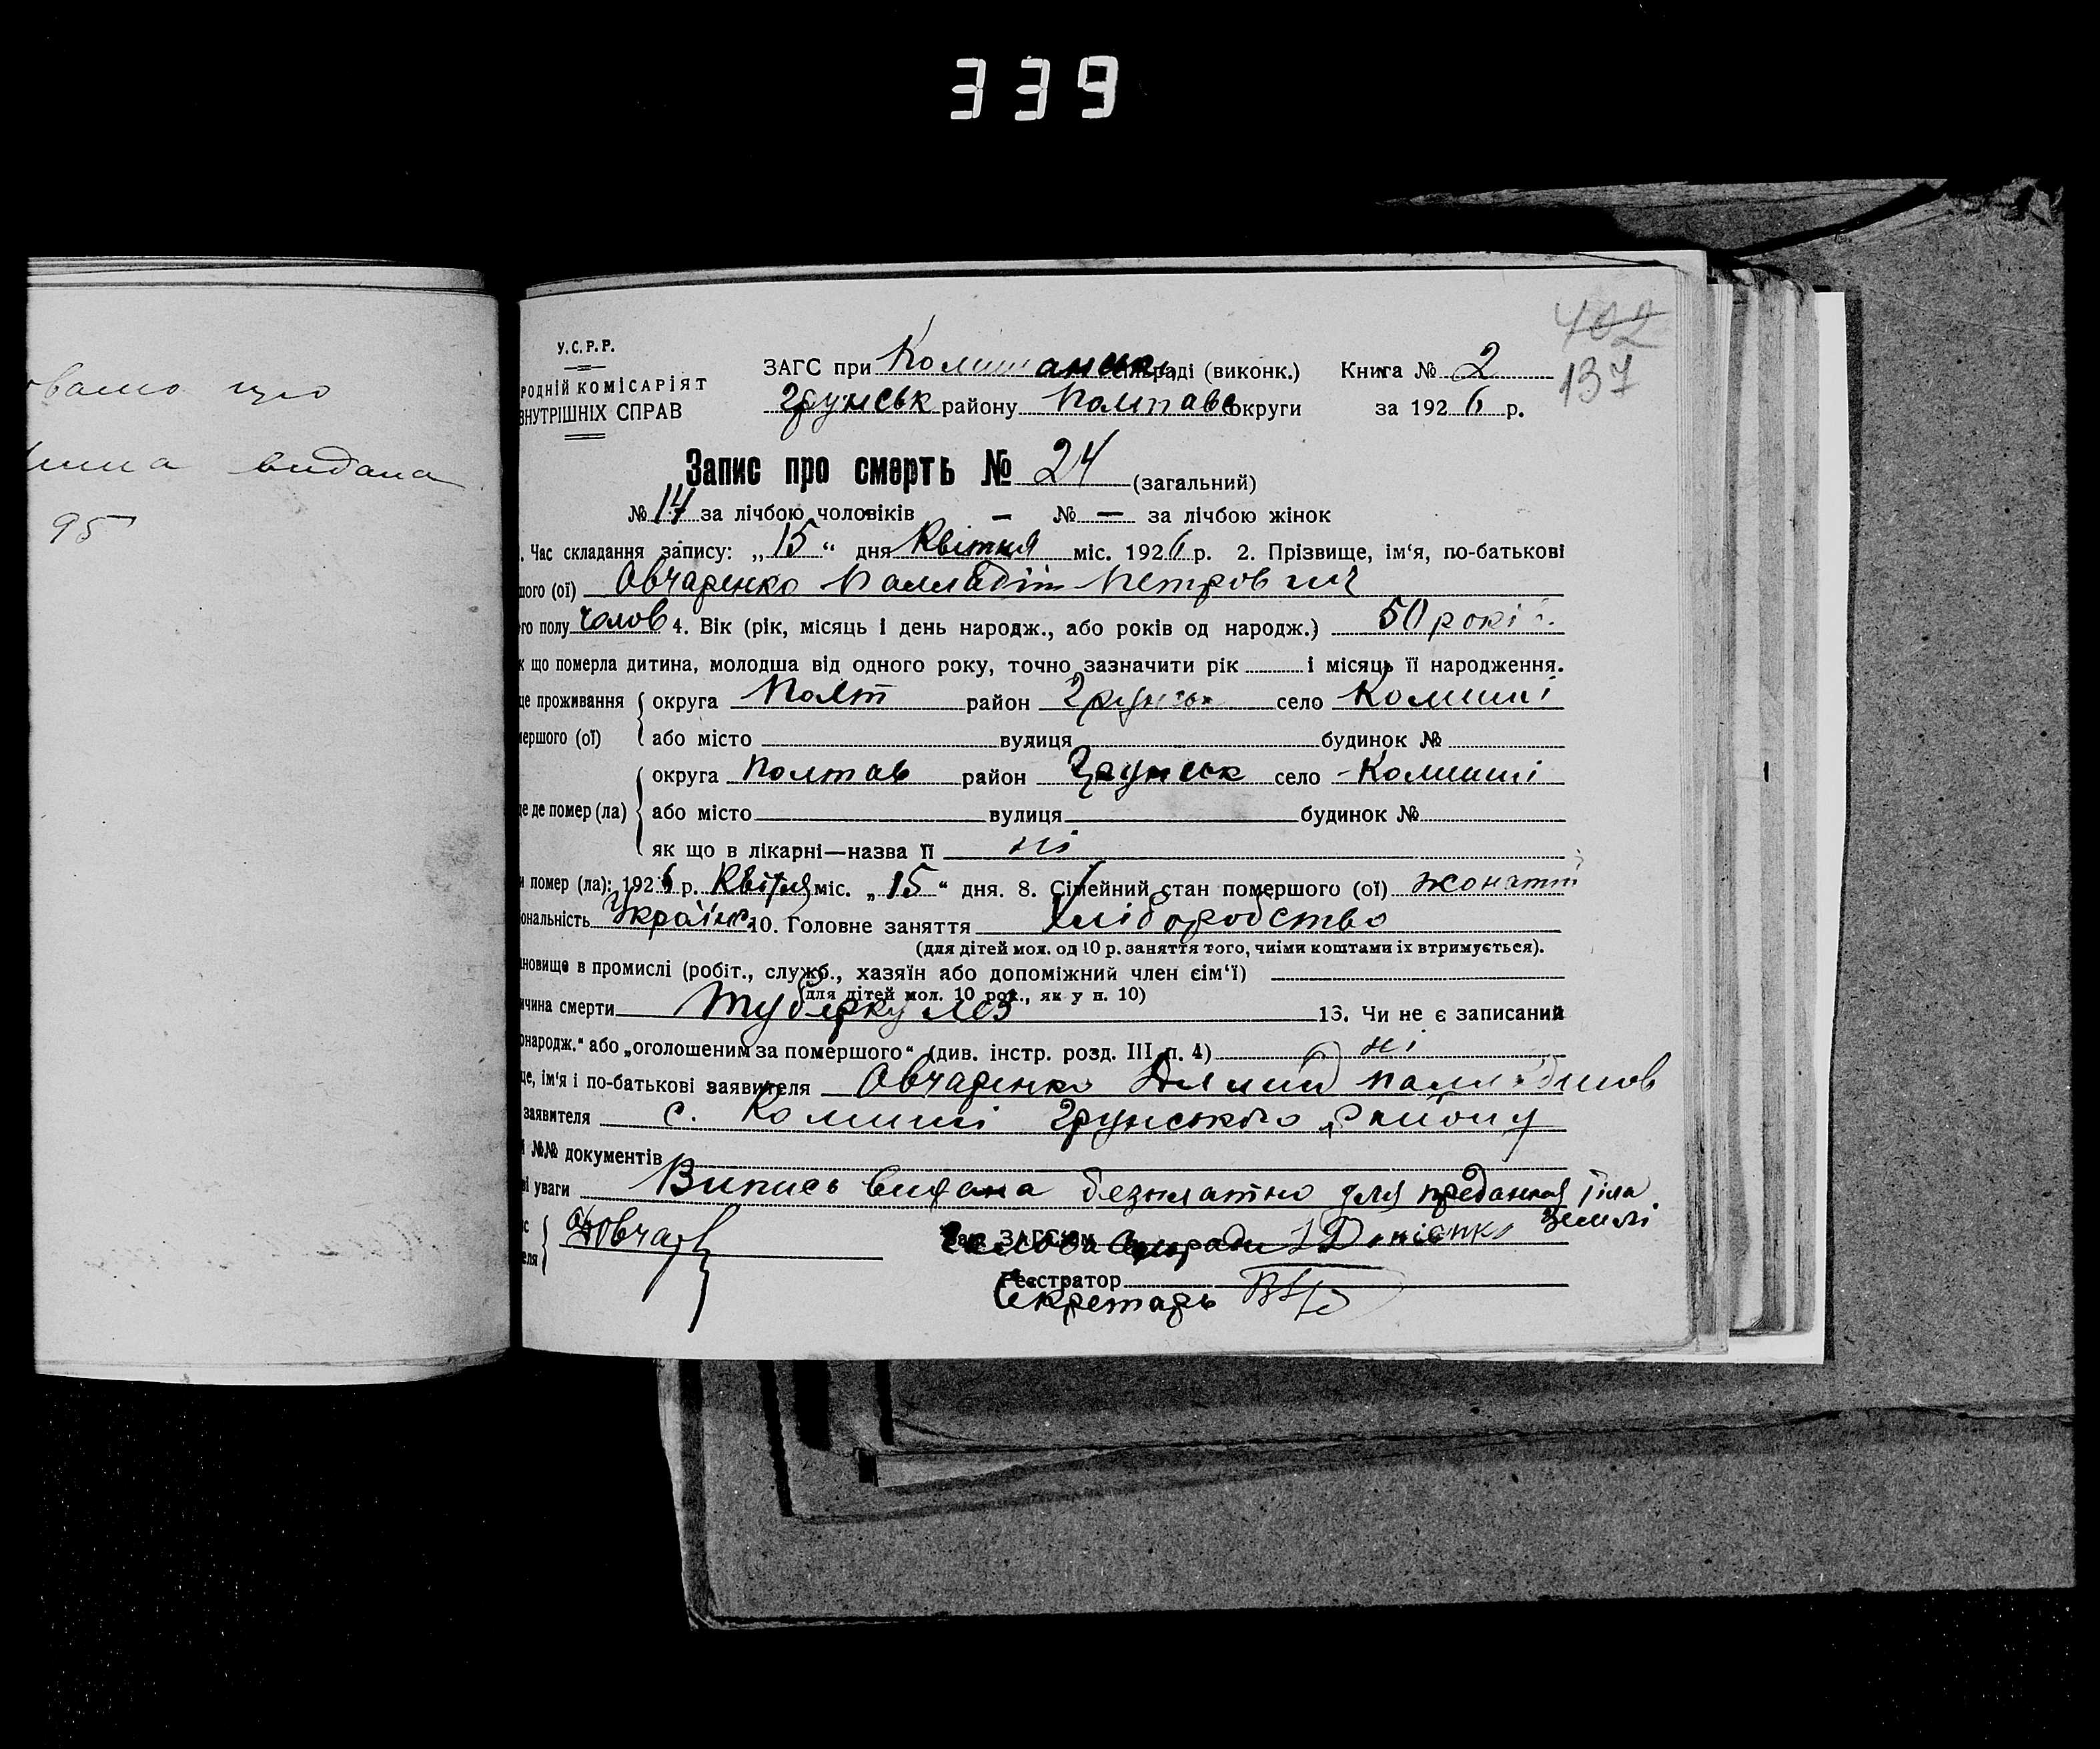 339
вамо що
видана
95
402
137
У.С.Р.Р.
РОДНІЙ КОМІСАРІЯТ
ВНУТРІШНІХ СПРАВ
ЗАГС при Комишанськ сільраді (виконк.) Книга № 2
Грунськ району Полтавс округи за 1926 р.
Запис про смерть № 24 (загальний)
№ 14 за лічбою чоловіків — № — за лічбою жінок
. Час складання запису: „15“ дня Квітня міс. 1926 р. 2. Прізвище, ім‘я, по-батькові
шого (ої) Овчаренко Палладій Петрович
го полу чолов 4. Вік (рік, місяць і день народж., або років од народж.) 50 років
к що померла дитина, молодша від одного року, точно зазначити рік і місяць її народження.
це проживання округа Полт район Грунськ село Комиші
мершого (ої) або місто вулиця будинок №
округа Полтав район Грунськ село Комиші
це де помер (ла) або місто вулиця будинок №
як що в лікарні—назва її ні
и помер (ла): 1926 р. Квітня міс. „15“ дня. 8. Сімейний стан помершого (ої) жонатий
ональність Українс 10. Головне заняття Хліборобство
(для дітей мол. од 10 р. заняття того, чиїми коштами їх втримується).
ановище в промислі (робіт., служб., хазяїн або допоміжний член сім‘ї)
(для дітей мол. 10 рок., як у п. 10)
ичина смерти туберкулез 13. Чи не є записаний
онародж.“ або „оголошеним за помершого“ (див. інстр. розд. III п. 4) ні
це, ім‘я і по-батькові заявителя Овчаренко Палладійов
заявителя с. Комиші Грунського району
й №№ документів
ві уваги Випись видана безплатно для предання тіла
землі
Овчар
Зав. ЗАГС‘ом
Голова Сільради
Реєстратор
Секретарь